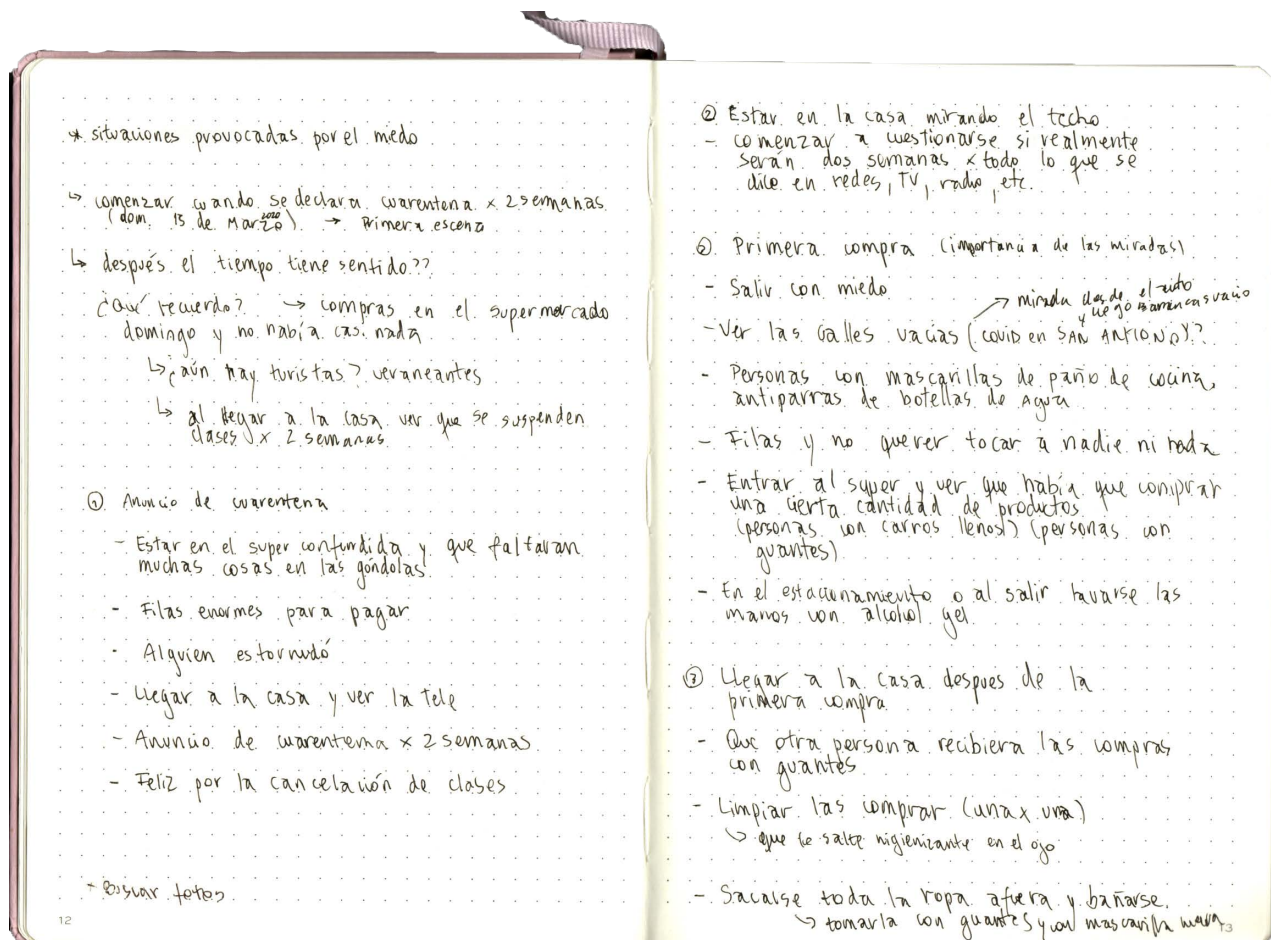 * situaciones provocadas por el miedo
↳ comenzar cuando se declara cuarentena x 2 semanas
(dom. 15 de Marzo 2020) → Primera escena
↳ después el tiempo tiene sentido??
¿Qué recuerdo? → compras en el supermercado
domingo y no había casi nada
↳ ¿aún hay turistas? veraneantes
↳ al llegar a la casa ver que se suspenden
clases x 2 semanas
① Anuncio de cuarentena
- Estar en el super confundida y que faltaran
muchas cosas en las góndolas
- Filas enormes para pagar
- Alguien estornudó
- Llegar a la casa y ver la tele
- Anuncio de cuarentena x 2 semanas
- Feliz por la cancelación de clases
12
② Estar en la casa mirando el techo
- comenzar a cuestionarse si realmente
serán dos semanas x todo lo que se
dice en redes, TV, radio, etc.
② Primera compra (importancia de las miradas)
- Salir con miedo
→ mirada desde el auto
y luego
- Ver las calles vacías (COVID en SAN ANTONIO)??
- Personas con mascarillas de paño de cocina,
antiparras de botellas de Agua
- Filas y no querer tocar a nadie ni nada
- Entrar al super y ver que había que comprar
una cierta cantidad de productos
(personas con carros llenos) (personas con
guantes)
- En el estacionamiento o al salir lavarse las
manos con alcohol gel
③ Llegar a la casa despues de la
primera compra
- Que otra persona recibiera las compras
con guantes
- Limpiar las comprar (una x una)
↳ que le salte higienizante en el ojo
- Sacarse toda la ropa afuera y bañarse.
↳ tomarla con guantes y con mascarilla
13